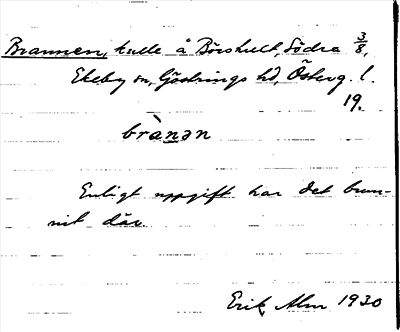 Brannen, kulle å Börshult, Södra 3/8,
Ekeby sn, Göstrings hd, Österg. l.
19.
brànən
Enligt uppgift har det brun-
nit där
Erik Alm 1930